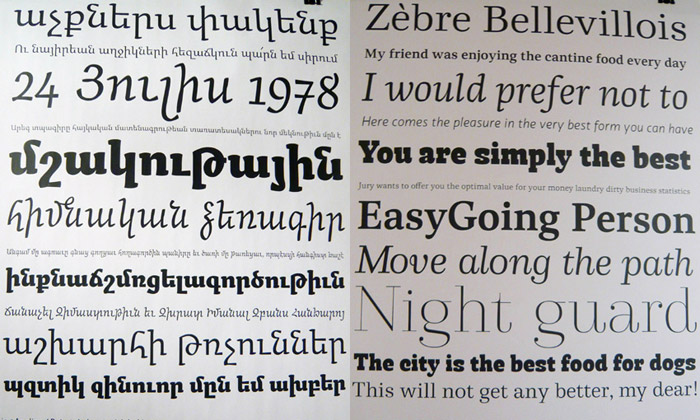 աչքներս փակենք
Ու նայիրեան աղջիկների հեզաճկուն պարն եմ սիրում
24 Յուլիս 1978
մշակութային
հիմնական ձեռագիր
ինքնաճշմոցելագործութիւն
Ճանաչել Զիմաստութիւն եւ
աշխարհի թռչուններ
պզտիկ զինուոր մըն եմ ախբեր
Zèbre Bellevillois
My friend was enjoying the cantine food every day
I would prefer not to
Here comes the pleasure in the very best form you can have
You are simply the best
Jury wants to offer you the optimal value for your money laundry dirty business statistics
EasyGoing Person
Move along the path
Night guard
The city is the best food for dogs
This will not get any better, my dear!